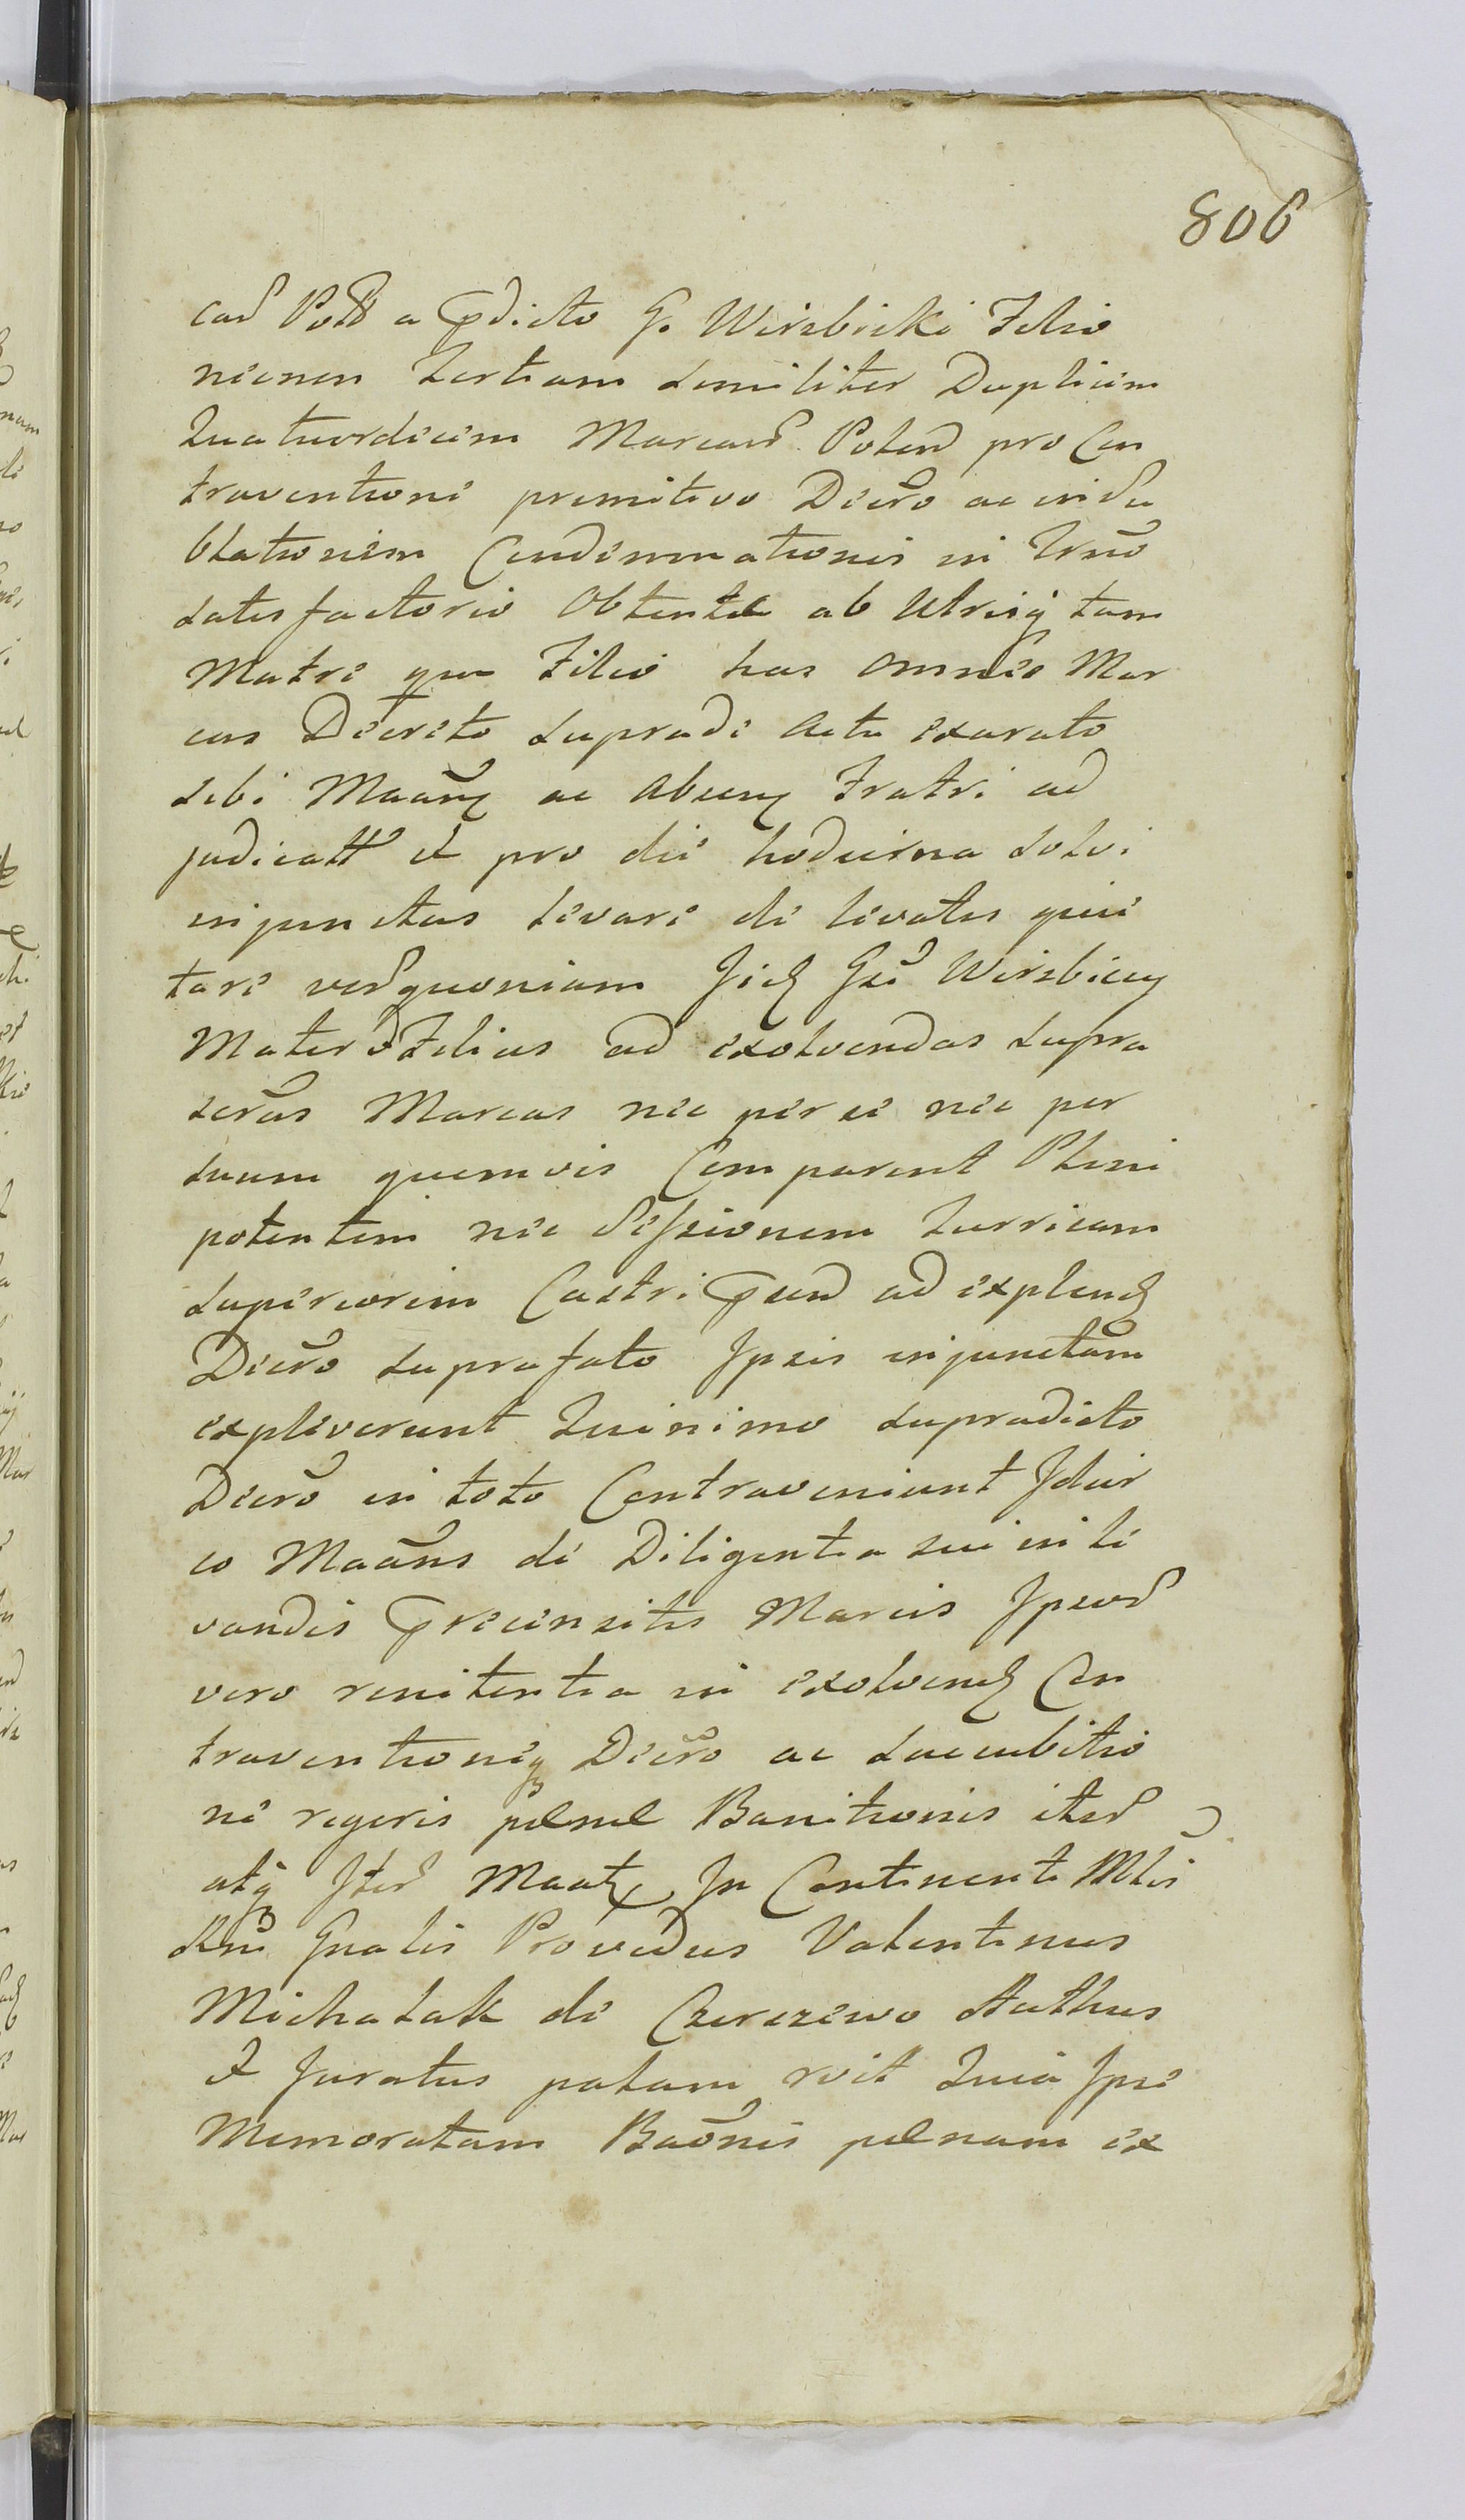 806
a p̃dicto G. Wirzbicki Filio
necnon Tertiam Similiter Duplicem
Quatuordecim Marcar̃ Polon̄ pro Con
traventione premitivo Decr̃o ac indu
blationem Condemnationis in Trm̃o
Satisfactorio Obtentæ ab Utrisq tam
Matre qm Filio has omnes Mar
cas Decreto Supradi Actu exarato
Sibi ac Abcenq Fratri ad
judicatt et pro die hodierna Solvi
injunctas levare de levatis quie
tare ver̃ quoniam Wirzbiccy
Mater & Filius ad exolvendas Supra
scr̃as Marcas nec per se nec per
Suum quemvis Comparent Pleni
potentem nec Seſsionem Turricam
Superiorem Castri ad explend
Decr̃o Suprafato Ipsis injunctam̃
expleverunt Quinimo Supradicto
Decr̃o in toto Contraveniunt Idcir
co Maañs de Diligentia sui in le
vandis precensitis Marcis Ipsor̃
vero renitentia in exolvend Con
traventioneq Decr̃o ac Succubitio
ne regeris pœnæ Banitionis iter̃
atq Iter̃ In Continenti Mtis
Rm̃ Gnalis Providus Valentinus
Michalak de Czerczewo Authus
et Juratus palam rvit Quia Ipse
Memoratam Baõnis pœnam ex